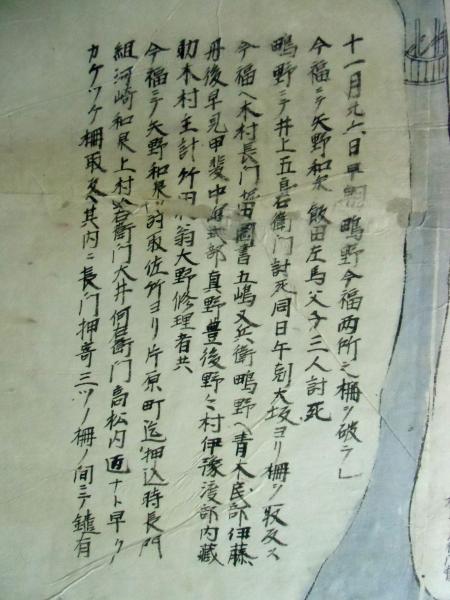 十一月廿六日早朝鴫野今福両所之柵ヲ破ラレ
今福ニテ矢野和泉飯田左馬父子三人討死
鴫野ニテ井上五良右衛門討死同日午刻大坂ヨリ柵ヲ取反ス
今福ヘ木村長門 図書五嶋又兵衛鴫野ヘ青木民部伊藤
丹後早見甲斐中嶋式部真野豊後野々村伊豫渡部内蔵
助木村主計竹田 翁大野修理者共
今福ニテ矢野和泉ヲ討取佐竹ヨリ片原町迄押込時長門
組河崎和泉上村 右衛門大井何右衛門高松内 ナト早ク
カケツケ柵取反ス其内ニ長門押寄三ツノ柵ノ間ニテ鑓有